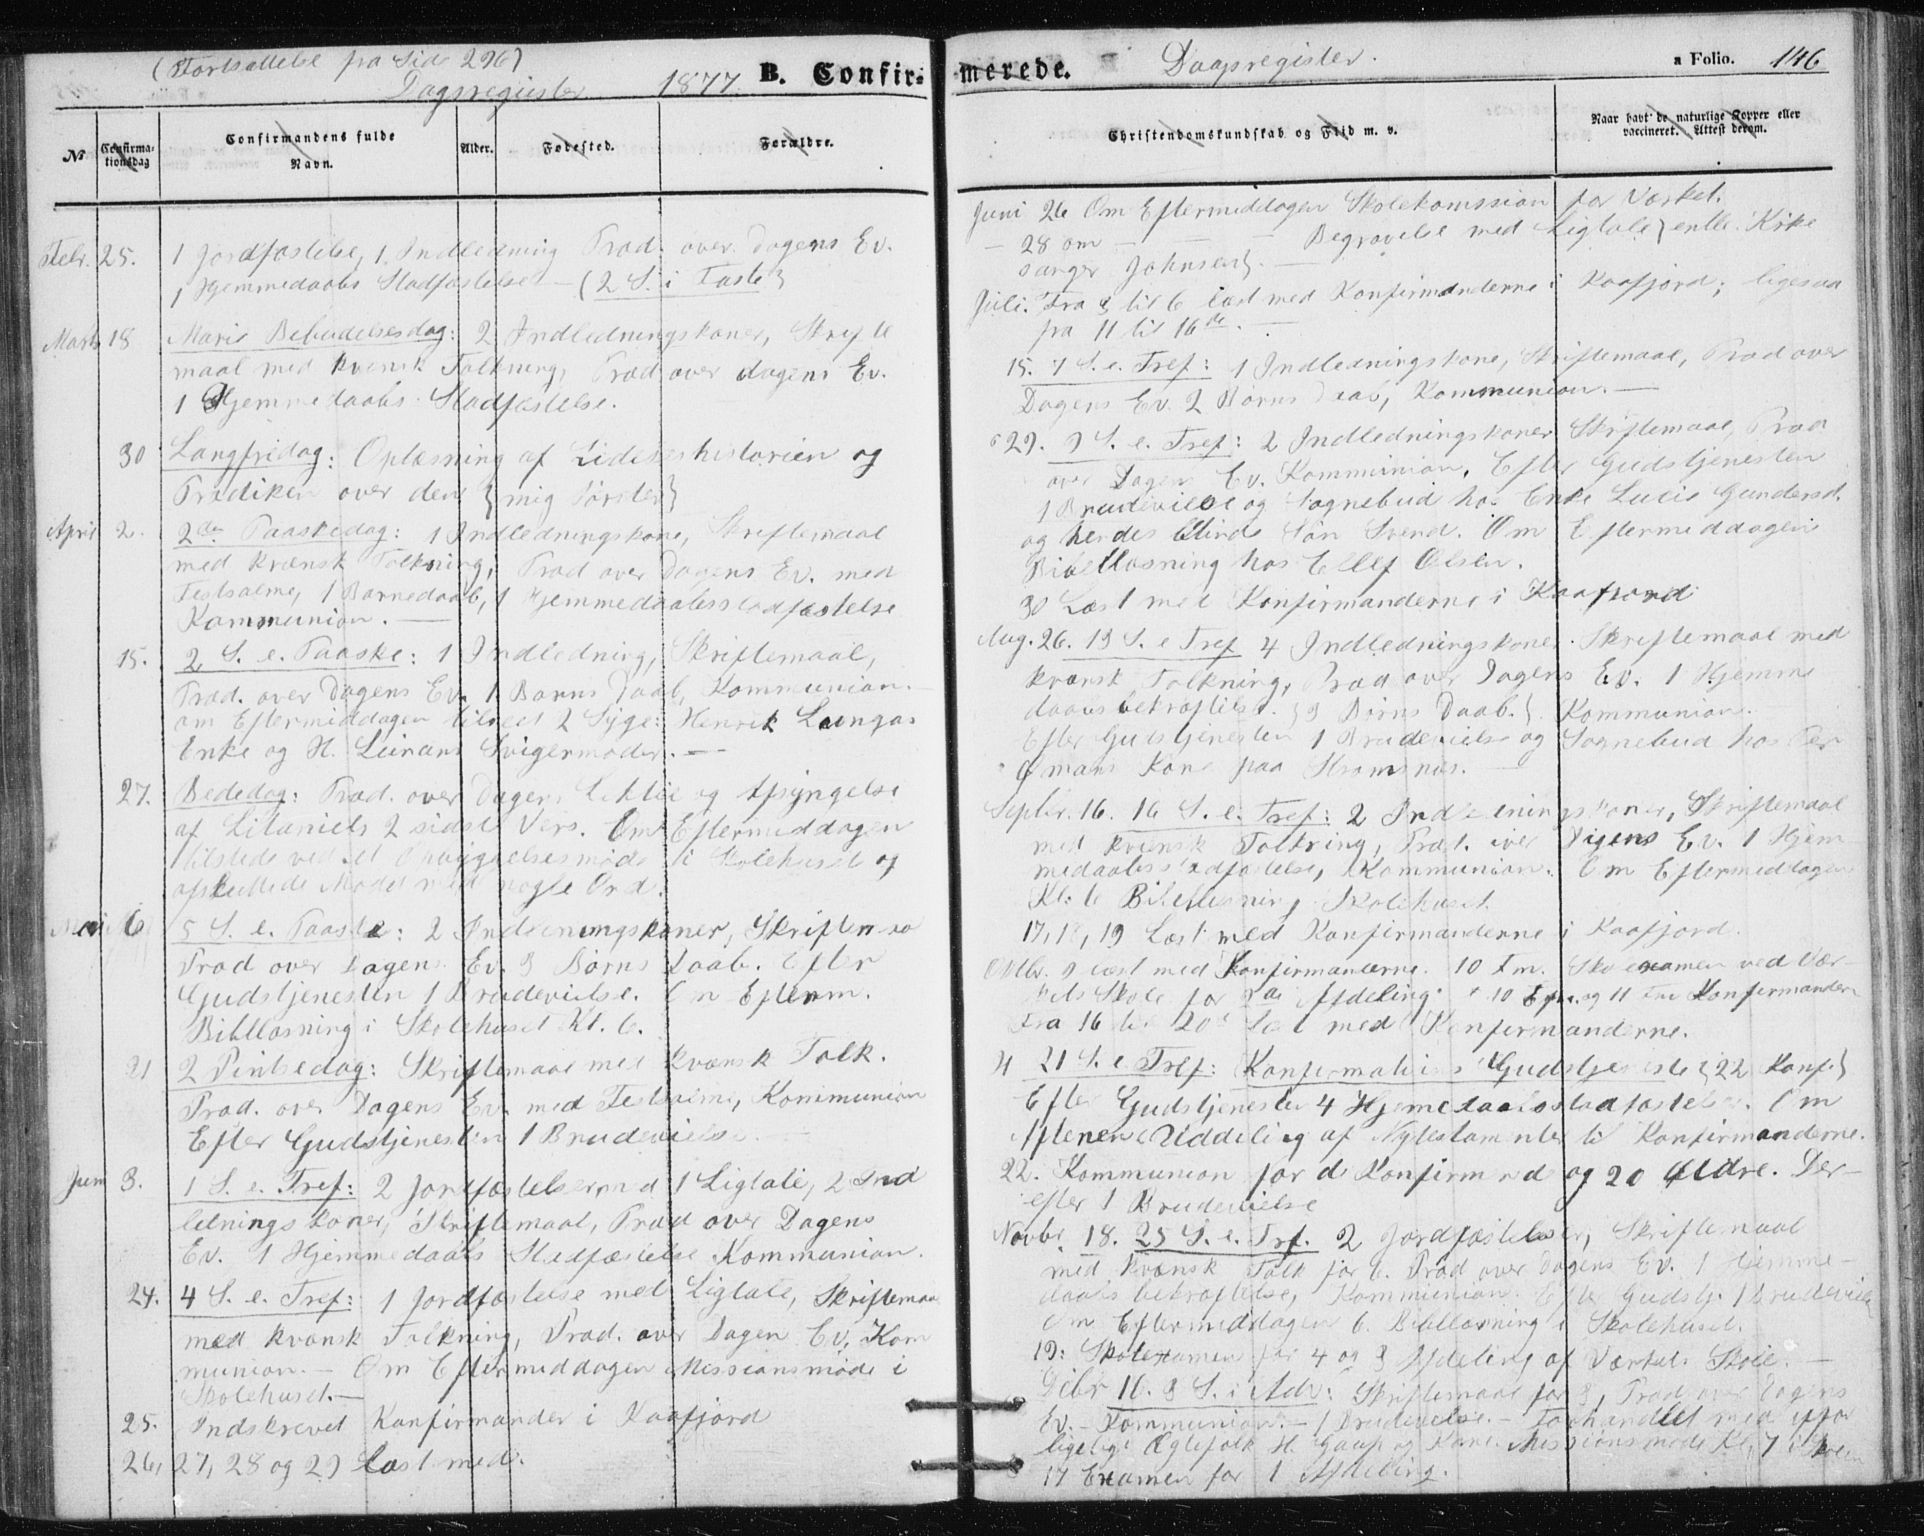 (Fortsættelse fra Side 296)
Dagsregister 1877. B. Confirmerede. Dagsregister. a Folio. 146
No
Confirmationsdag
Confirmandens fulde Navn.
Alder.
Fødested.
Forældre.
Christendomskundskab og Flid m. v.
Naar havt de naturlige Kopper eller vaccineret. Attest derom.
Febr. 25. 1 Jordfæstelse, 1 Indledning Præd. over Dagens Ev.
1 Hjemmedaabs Stadfæstelse – (2 S. i Faste)
Marts 18 Mariæ Bebudelsesdag: 2 Indledningskoner, Skrifte
maal med kvænsk Tolkning, Præd over dagens Ev.
1 Hjemmedaabs Stadfæstelse.
30 Langfredag: Oplæsning af Lidelseshistorien og
Prædiken over den
April 2. 2den Paaskedag: 1 Indledningskone, Skriftemaal
med kvænsk Tolkning, Præd over Dagens Ev. med
Festsalme, 1 Barnedaab, 1 Hjemmedaabsstadfæstelse
Kommunion. —
15. 2 S. e. Paaske: 1 Indledning, Skriftemaal,
Præd. over Dagens Ev. 1 Barns Daab, Kommunion. —
om Eftermiddagen tilseet 2 Syge: Henrik
Enke og H. Svigermoder. —
27. Bededag: Præd. over Dagens Lektie og Afsyngelse
af Litaniets 2 sidste Vers. Om Eftermiddagen
tilstede ved et Opbyggelsesmøde i Skolehuset og
afsluttede Mødet med nogle Ord.
Mai 6 5 S. e. Paaske: 2 Indledningskoner,
Præd over Dagens Ev. 3 Børns Daab. Efter
Gudstjenesten 1 Brudevielse. Om Efterm.
Bibellæsning i Skolehuset Kl. 6.
21 2 Pintsedag: Skriftemaal med kvænsk Tolk.
Præd. over Dagens Ev. med Festsalme, Kommunion
Efter Gudstjenesten 1 Brudevielse. —
Juni 3. 1 S. e. Tref: 2 Jordfæstelser med 1 Ligtale, 2 Ind
ledningskoner, Skriftemaal, Præd over Dagens
Ev. 1 Hjemmedaabs Stadfæstelse Kommunion.
24. 4 S. e. Tref: 1 Jordfæstelse med Ligtale, Skriftemaal
med kvænsk Tolkning, Præd. over Dagen Ev. Kom
munion. – Om Eftermiddagen Missionsmøde i
Skolehuset. —
25. Indskrevet Konfirmander i Kaafjord
26, 27, 28 og 29 Læst med.
Juni 26 Om Eftermiddagen Skolekomssion for Værket.
— 28 om — — — Begravelse med Ligtale Kirke
sanger Johnsen. —
Juli. Fra 3 til 6 læst med Konfirmanderne i Kaafjord; ligesaa
fra 11 til 16de. —
15. 7 S. e. Tref: 1 Indledningskone, Skriftemaal, Præd over
Dagens Ev. 2 Børns Daab, Kommunion. —
29. 9 S. e. Tref: 2 Indledningskoner Skriftemaal, Præd
over Dagen Ev. Kommunion. Efter Gudstjenesten
1 Brudevielse og Sognebud hos Enke Gundersd.
og hendes blinde Søn Svend. Om Eftermiddagen
Bibellæsning hos Ellef Olsen.
30 Læst med Konfirmanderne i Kaafjord
Aug. 26. 13 S. e Tref 4 Indledningskoner. Skriftemaal med
kvænsk Tolkning, Præd over Dagens Ev. 1 Hjemme
daabsbekræftelse. 3 Børns Daab. Kommunion.
Efter Gudstjenesten 1 Brudevielse og Sognebud hos
Kone paa
Septbr. 16. 16 S. e. Tref: 2 Indledningskoner, Skriftemaal
med kvænsk Tolkning, Præd. over Dagens Ev. 1 Hjem
medaabsstadfæstelse, Kommunion. Om Eftermiddagen
Kl. 6 Bibellæsning Skolehuset
17, 18, 19 Læst med Konfirmanderne i Kaafjord.
Oktbr. 9 læst med Konfirmanderne. 10 Fm. Skoleexamen ved Vær-
kets Skole for 2de Afdeling. 10 og 11 Konfirmander
Fra 16 til 20de Læst med Konfirmanderne.
21 S. e Tref: Konfirmations Gudstjeneste (22 Konf.)
Efter Gudstjenesten 4 Hjemedaabsstadfæstelser. Om
Aftenen Uddeling af Nytestamenter til Konfirmanderne.
22. Kommunion for de Konfirmerede og 20 Ældre. Der-
efter 1 Brudevielse
Novbr. 18. 25 S. e. Trf. 2 Jordfæstelser, Skriftemaal
med kvænsk Tolk for 6. Præd over Dagens Ev. 1 Hjemme-
daabsbekræftelse, Kommunion. Efter Gudstj. 1 Brudevielse
Om Eftermiddagen 6. Bibellæsning i Skolehuset.
19: Skolexamen for 4 og 3 Afdeling af Værkets Skole. —
Decbr 16. 3 S. i Adv: Skriftemaal for 8, Præd over Dagens
Ev. – Kommunion. – 1 Brudevielse. – Forhandlet med ufor
ligelige Ægtefolk H. Gaup og Kone. Missionsmøde Kl. 7 i
17 Examen for 1 Afdeling.